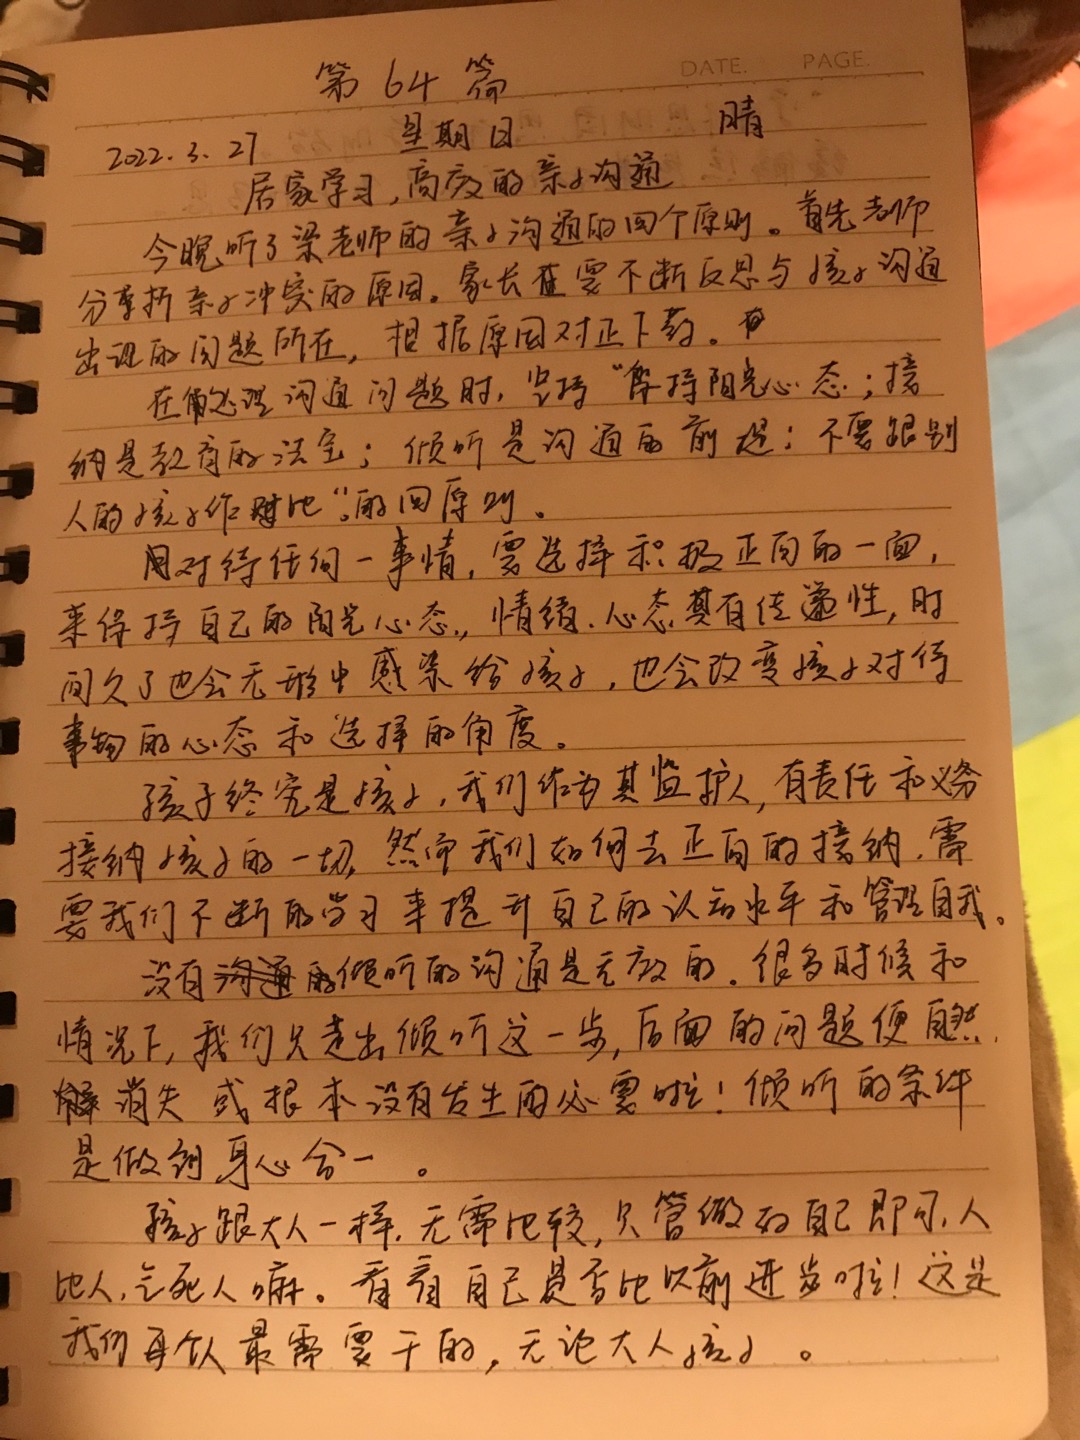 DATE. PAGE.
第64篇
2022.3.27 星期日 晴
居家学习,高效的亲子沟通
今晚听了梁老师的亲子沟通的四个原则。首先老师
分享析亲子冲突的原因。家长需要不断反思与孩子沟通
出现的问题所在,根据原因对正下药。
在处理沟通问题时,坚持“保持阳光心态;接
纳是教育的法宝;倾听是沟通的前提;不要跟别
人的孩子作对比”的四原则。
对待任何一事情,要选择积极正向的一面,
来保持自己的阳光心态,情绪、心态具有传递性,时
间久了也会无形中感染给孩子,也会改变孩子对待
事物的心态和选择的角度。
孩子终究是孩子,我们作为其监护人,有责任和义务
接纳孩子的一切,然而我们如何去正向的接纳,需
要我们不断的学习来提升自己的认知水平和管理自我。
没有倾听的沟通是无效的。很多时候和
情况下,我们只走出倾听这一步,后面的问题便自然
消失或根本没有发生的必要啦!倾听的条件
是做到身心合一。
孩子跟大人一样,无需比较,只管做好自己即可,人
比人,气死人嘛。看看自己是否比以前进步啦!这是
我们每个人最需要干的,无论大人孩子。